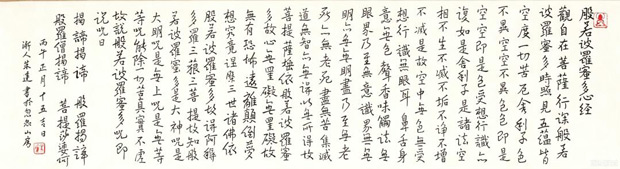 般若波羅蜜多心經
觀自在菩薩行深般若
波羅蜜多時照見五蘊皆
空度一切苦厄舍利子色
不異空空不異色色即是
空空即是色受想行識亦
復如是舍利子是諸法空
相不生不滅不垢不淨不增
不減是故空中無色無受
想行識無眼耳鼻舌身
意無色聲香味觸法無
眼界乃至無意識界無無
明亦無無明盡乃至無老
死亦無老死盡無苦集滅
道無智亦無得以無所得故
菩提薩埵依般若波羅蜜
多故心無罣礙無罣礙故
無有恐怖遠離顛倒夢
想究竟涅槃三世諸佛依
般若波羅蜜多故得阿耨
多羅三藐三菩提故知般
若波羅蜜多是大神咒是
大明咒是無上咒是無等
等咒能除一切苦真實不虛
故說般若波羅蜜多咒即
說咒曰
揭諦揭諦 般羅揭諦
般羅僧揭諦 菩提莎婆訶
丙午正月十五吉日
浙人 蓮書於 山房